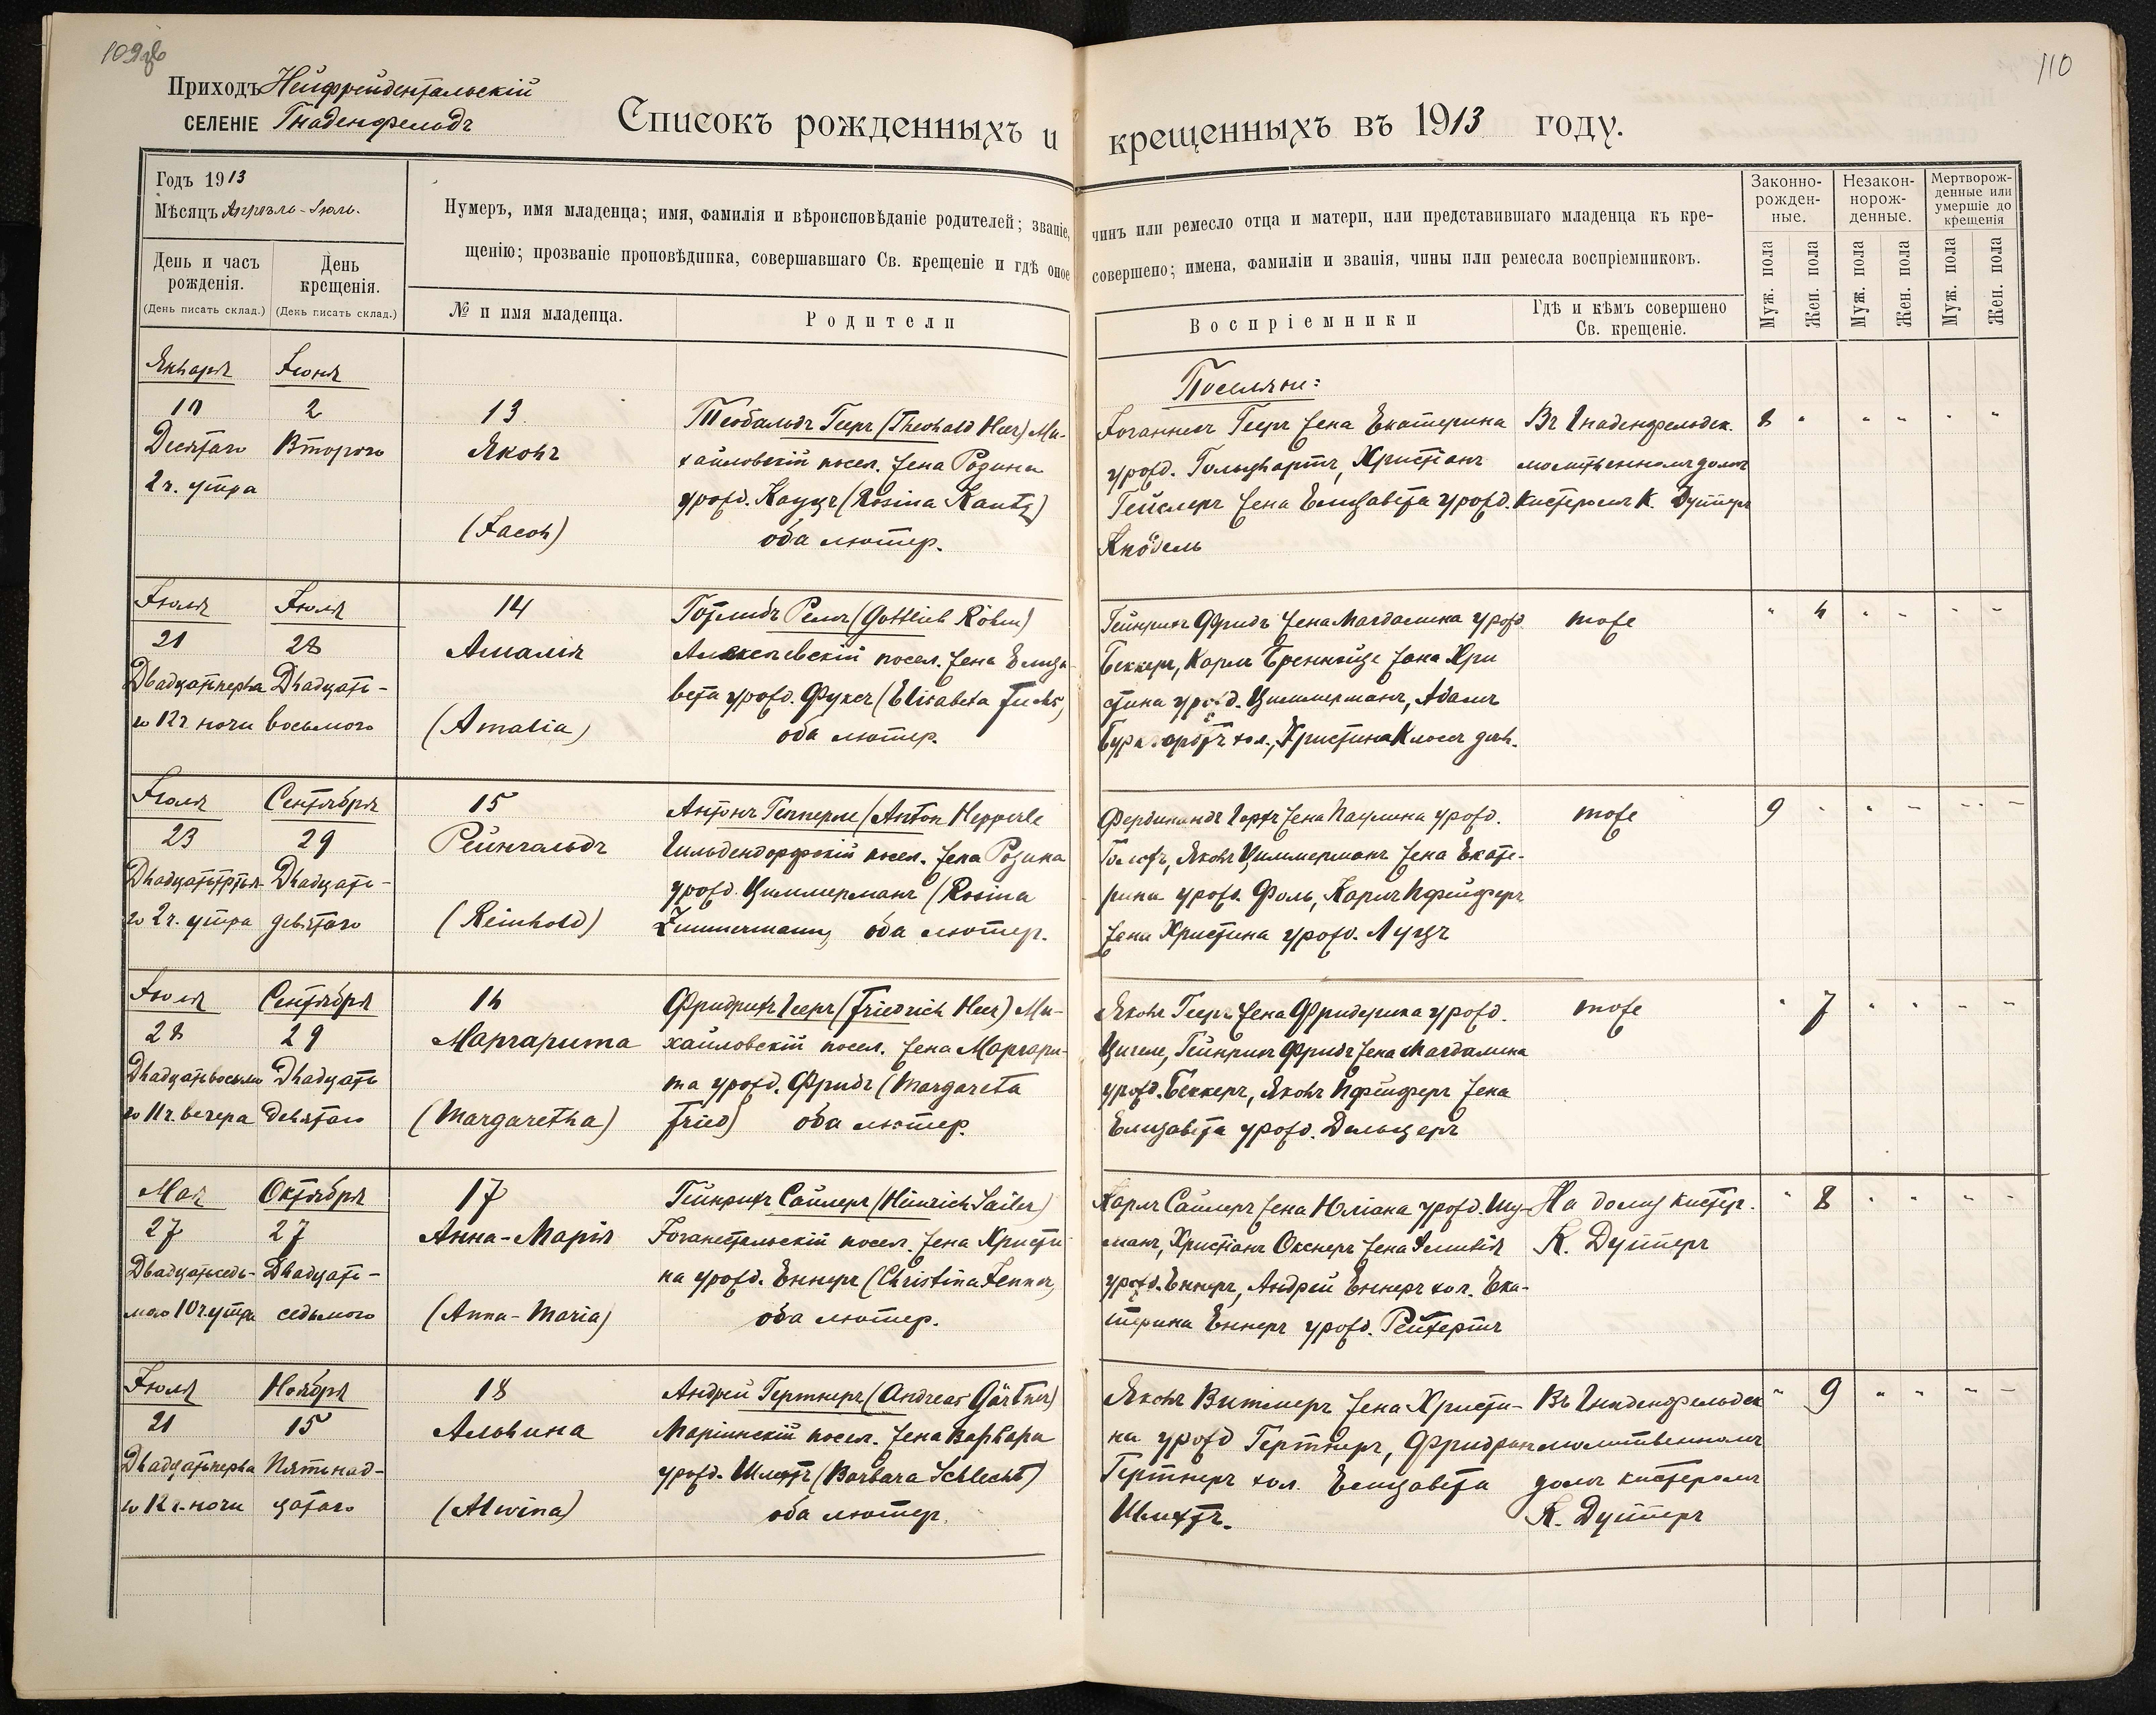 110
Приходъ Нейфрейдентальскій
СЕЛЕНІЕ Гнаденфельдъ
Списокъ рожденныхъ и крещенныхъ въ 1913 году.
Годъ 1913
Мѣсяцъ Апрѣль-Іюль.
День и часъ рожденія.
(День писать склад.)
День крещенія.
(День писать склад.)
Нумеръ, имя младенца; имя, фамилія и вѣроисповѣданіе родителей; званіе, чинъ или ремесло отца и матери, или представившаго младенца къ кре-
щенію; прозваніе проповѣдника, совершавшаго Св. крещеніе и гдѣ оное совершено; имена, фамиліи и званія, чины или ремесла воспріемниковъ.
№ и имя младенца.
Родители
Воспріемники
Гдѣ и кѣмъ совершено
Св. крещеніе.
Законно-
рожден-
ные.
Незакон-
норож-
денные.
Мертворож-
денные или
умершіе до
крещенія
Муж. пола
Жен. пола
Муж. пола
Жен. пола
Муж. пола
Жен. пола
Января
10
Десятаго
2 ч. утра
Іюня
2
Второго
13
Яковъ
(Jacob)
Теобальдъ Гееръ (Theobald Heer) Ми-
хайловскій посел. жена Розина
урожд. Кауцъ (Rosina Kautz)
оба лютер.
Поселяне:
Іоганнесъ Гееръ жена Екатерина
урожд. Гольцвартъ, Христіанъ
Гейслеръ жена Елизавета урожд.
Кнодель
Въ Гнаденфельдск.
молитвенномъ домѣ
кистеромъ К. Дуттеръ
8
Іюля
21
Двадцатьперва
го 12 ч. ночи
Іюля
28
Двадцать-
восьмого
14
Амалія
(Amalia)
Готлибъ Ремъ (Gottlieb Röhm)
Алексеевскій посел. жена Елиза-
вета урожд. Фуксъ (Elisabeta Fuchs)
оба лютер.
Гейнрихъ Фридъ жена Магдалина урожд.
Беккеръ, Карлъ жена Хри
стина урожд. Циммерманъ, Адамъ
хол., Христина Клосъ дѣв.
тоже
4
Іюля
23
Двадцатьтретья
го 2 ч. утра
Сентября
29
Двадцать-
девятаго
15
Рейнгольдъ
(Reinhold)
Антонъ Гепперле (Anton Hepperle
Гильдендорфскій посел. жена Розина
урожд. Циммерманъ (Rosina
Zimmermann) оба лютер.
Фердинандъ жена Паулина урожд.
Яковъ Циммерманъ жена Екате-
рина урожд. Фоль, Карлъ Пфейферъ
жена Христина урожд. Луцъ
тоже
9
Іюля
28
Двадцатьвосьмо
го 11 ч. вечера
Сентября
29
Двадцать
девятаго
16
Маргарита
(Margaretha)
Фридрихъ Гееръ (Friedrich Heer) Ми-
хайловскій посел. жена Маргари-
та урожд. Фридъ (Margareta
Fried) оба лютер.
Яковъ Гееръ жена Фридерика урожд.
Цигеле, Гейнрихъ Фридъ жена Магдалина
урожд. Беккеръ, Яковъ Пфейферъ жена
Елизавета урожд. Дельцеръ
тоже
7
Мая
27
Двадцатьседь-
мого 10 ч. утра
Октября
27
Двадцать-
седьмого
17
Анна-Марія
(Anna-Maria)
Гейнрихъ Сайлеръ (Heinrich Sailer)
Іоганестальскій посел. жена Христи
на урожд. Еннеръ (Christina Jenner)
оба лютер.
Карлъ Сайлеръ жена Юліана урожд. Шу-
манъ, Христіанъ Окснеръ жена
урожд. Еннеръ, Андрей Еннеръ хол. Ека-
терина Еннеръ урожд. Рейхертъ
На дому кистер.
К. Дуттеръ
8
Іюля
21
Двадцатьперва
го 12 ч. ночи
Ноября
15
Пятнад-
цатаго
18
Альвина
(Alwina)
Андрей Гертнеръ (Andreas Gärtner)
Маріинскій посел. жена Варвара
урожд. Шлехтъ (Barbara Schlecht)
оба лютер.
Яковъ Витмеръ жена Христи-
на урожд Гертнеръ, Фридрихъ
Гертнеръ хол. Елизавета
Шлехтъ.
Въ Гнаденфельдск
молитвенномъ
домѣ кистеромъ
К. Дуттеръ
9